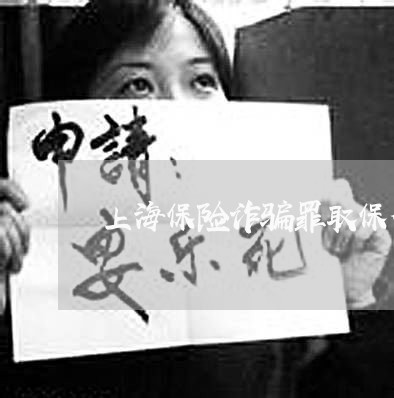 申請：
上海保险诈骗罪取保
安乐死